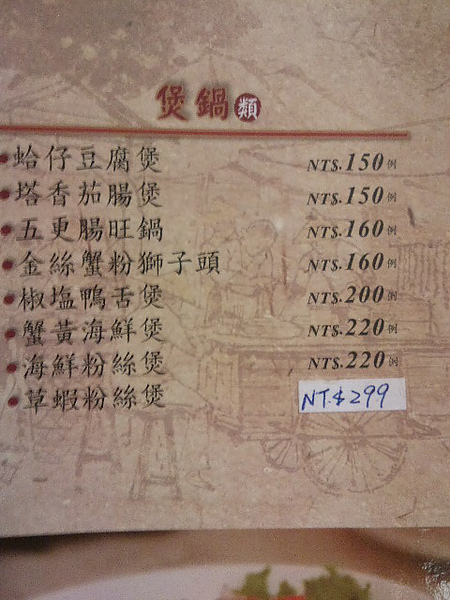 煲鍋類
蛤仔豆腐煲 NT$.150例
塔香茄腸煲 NT$.150例
五更腸旺鍋 NT$.160例
金絲蟹粉獅子頭 NT$.160例
椒塩鴨舌煲 NT$.200例
蟹黃海鮮煲 NT$.220例
海鮮粉絲煲 NT$.220例
草蝦粉絲煲 NT.$299